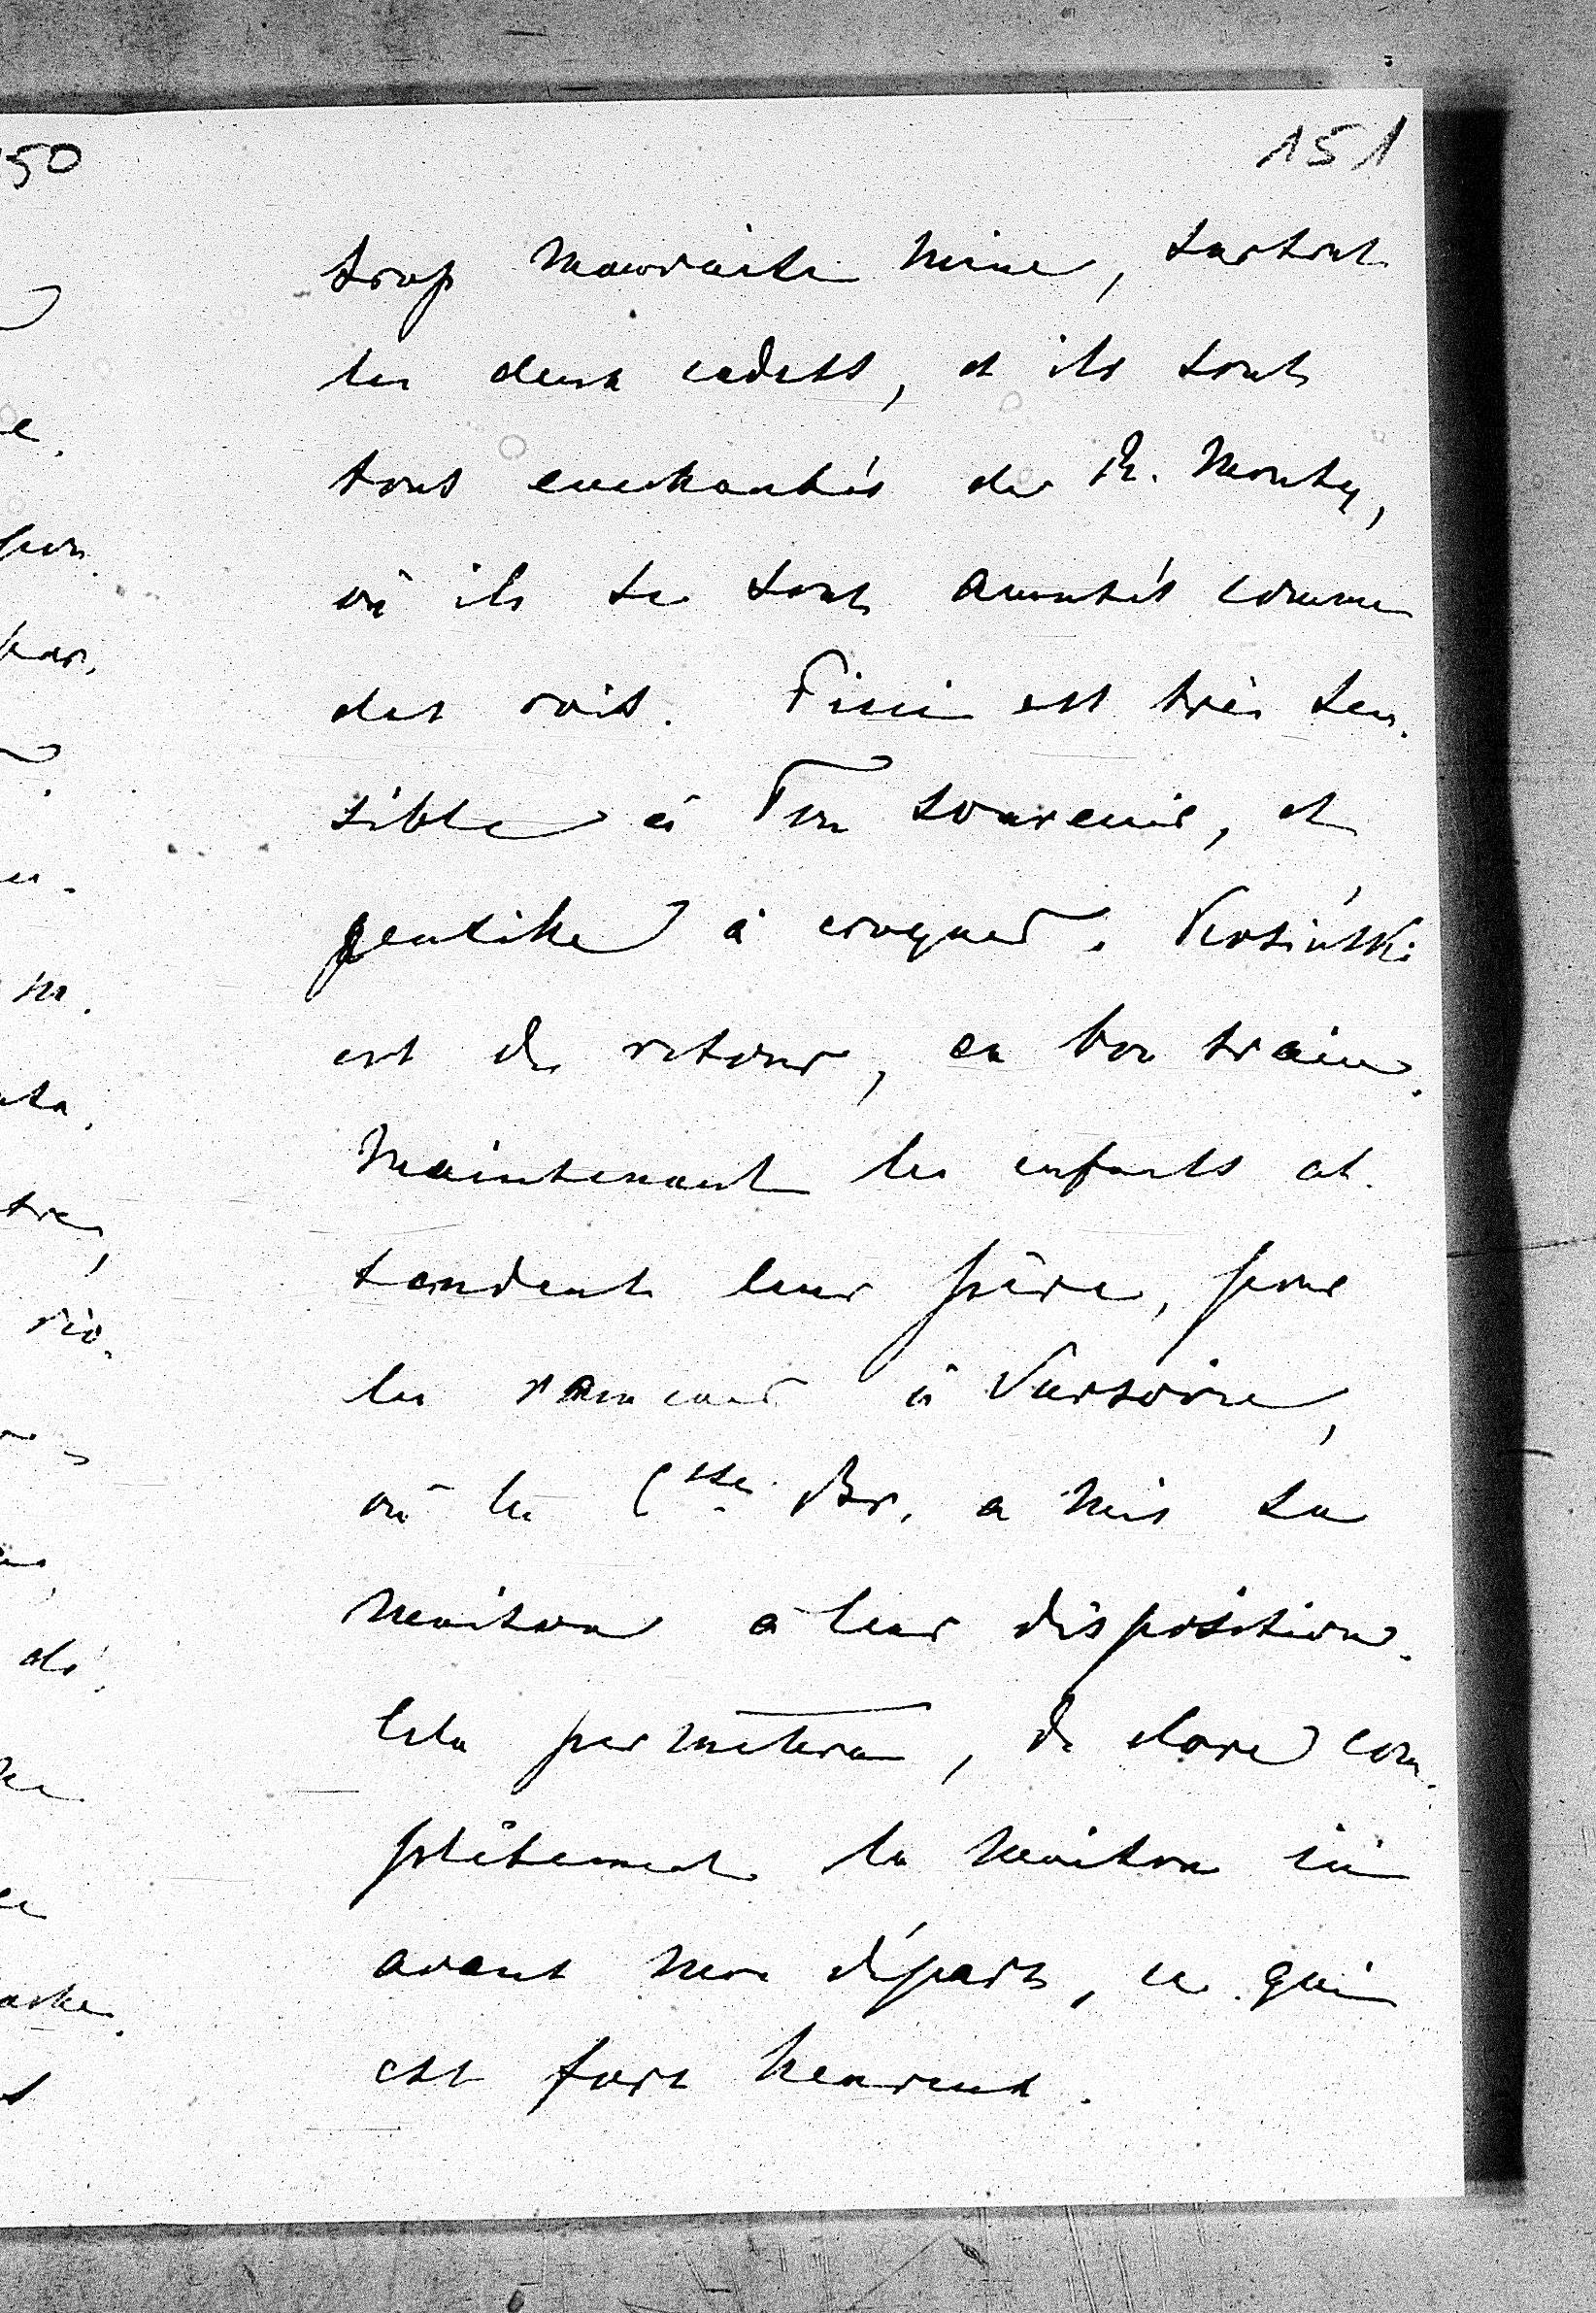 151
trop mauvaise mine, surtout
les deux cadets, et ils sont
tous enchantés de R. Monty,
où ils se sont amusés comme
des rois. Fifi est très sen-
sible à Ton souvenir, et
gentille à croquer. Kosiński
est de retour, en bon train.
Maintenant les enfants at-
tendent leur père, pour
les ramener à Varsovie,
où la Csse Br. a mis sa
maison à leur disposition.
Cela permettra, de clore com-
plètement la maison ici
avant mon départ, ce qui
est fort heureux.